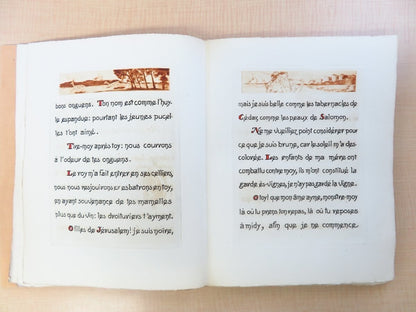 bons onguens. Ton nom est comme l'huy-
le espandue: pourtant les jeunes pucel-
les t'ont aimé.
Tire-moy apres toy: nous courrons
à l'odeur de tes onguens.
Le roy m'a fait entrer en ses celliers,
nous nous resjouirons esbatrons en toy,
en ayant souvenance de tes mamelles
plus que du vin: les droituriers t'ayment.
O filles de Jerusalem! je suis noire,
mais je suis belle comme les tabernacles de
Cedar, comme les peaux de Salomon.
Ne me vueillez point considerer pour
ce que je suis brune, car le soleil m'a des-
colorée. Les enfants de ma mére ont
combattu contre moy, ils m'ont constitué la
garde és vignes, je n'ay pas gardé la vigne.
O toy! que mon âme ayme, monstre-moy
là où tu prens ton repas, là où tu reposes
à midy, afin que je ne commence.